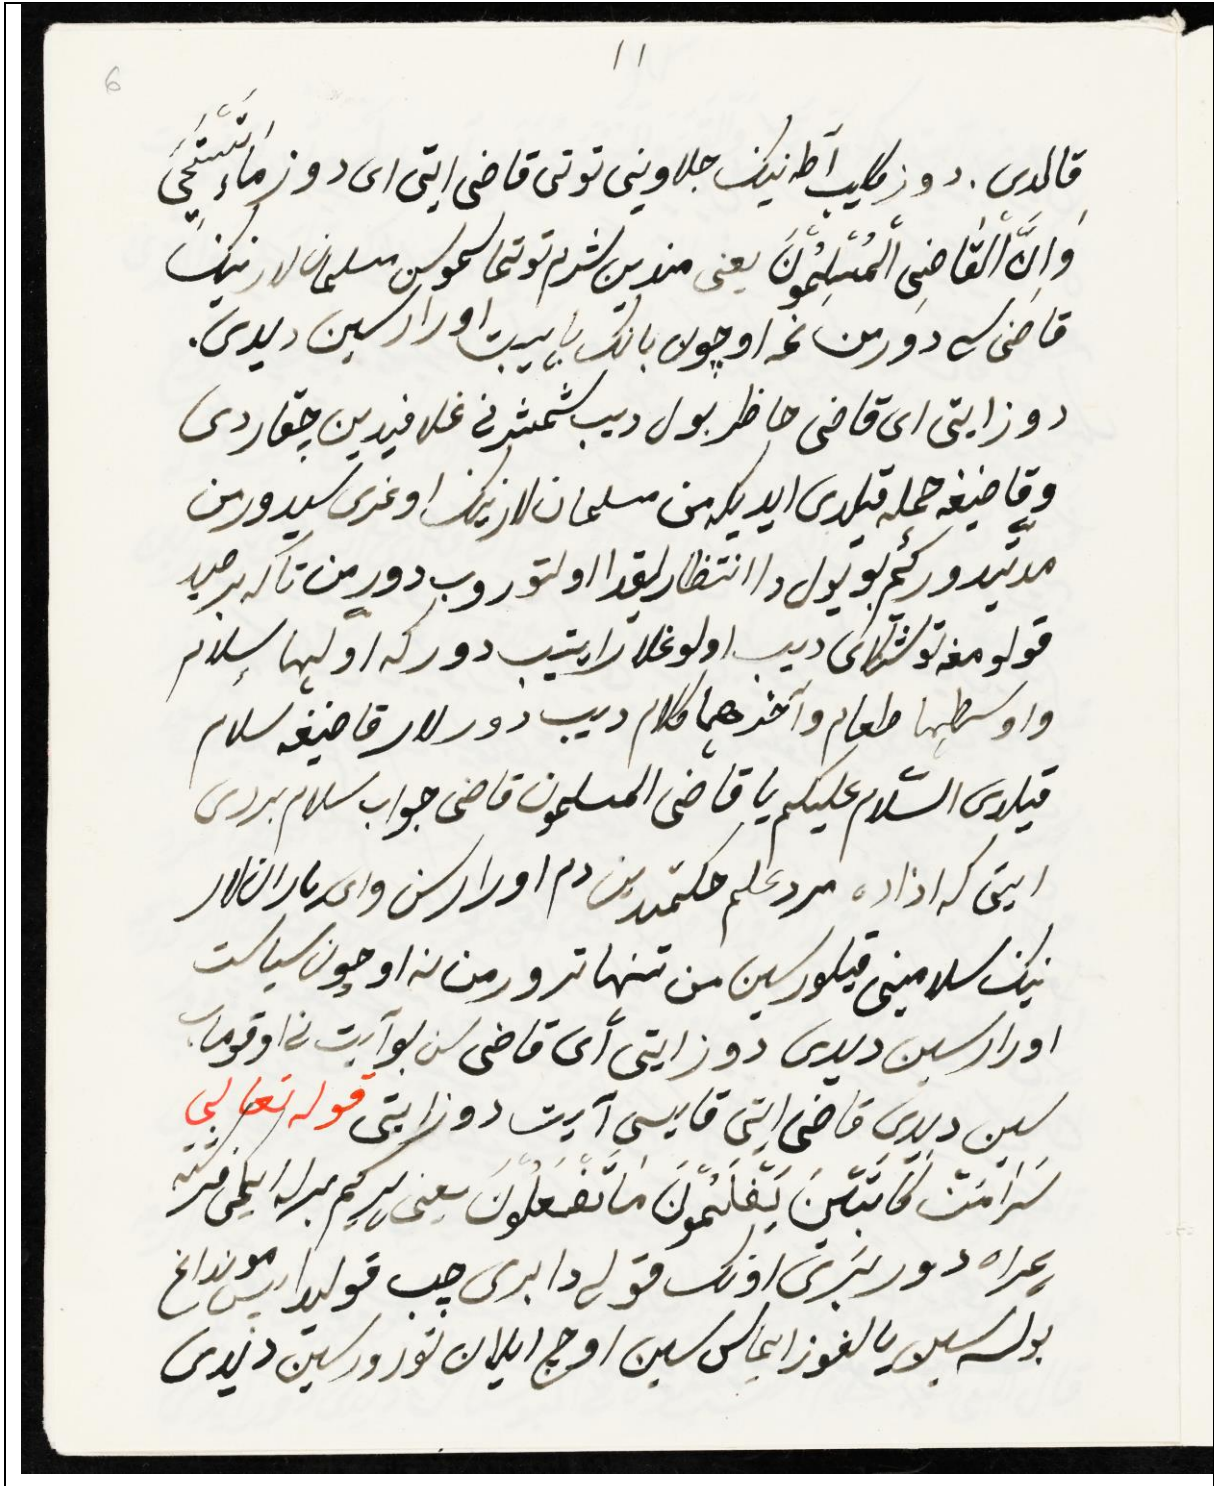 ۱۱
6
قالدی . دوز کلیب آطه نینک جلاوینی توتی قاضی ایتی ای دوز مَاءِ تَسْتَحْیَ
وَاِنَّ الْقَاضِیِ الْمُسِلِمُوْنَ یعنی مندین شرم توتماسموسن مسلمان لار نینک
قاضی سی دورمن نمه اوچون بانک یا هیبت اورارسین دیدی .
دوز ایتی ای قاضی حاظر بول دیب شمشیر نی غلافیدین چقاردی
و قاضیغه حمله قیلدی ایدیکه من مسلمان لار نینک اوغری سیدورمن
مدتیدورکم بو یول دا انتظارلیقدا اولتوروب دورمن تاکه بر صید
قولومغه توشکای دیب اولوغلار ایتیب دورکه اولها إسلام
واوسطها طعام و آخرهما کلام دیب دورلار قاضیغه سلام
قیلدی السّلام علیکم یا قاضی المسلمون قاضی جواب سلام بردی
ایتی که اذاده مرد علم حکمتدین دم اورارسن وای یارانلار
نینک سلامینی قیلورسین من تنها ترورمن نه اوچون سیاست
اورارسین دیدی دوز ایتی أی قاضی سن بو آیت نی اوقوماب
سین دیدی قاضی ایتی قایسی آیت دوز ایتی قوله تعالی
کِرَامًا کَاتَبْیِنَ یَعْلَمُوْنَ مَا تَفْعَلُوْنَ یعنی هر کیم برلە ایکی فرشته
همراه دور بیری اونک قولی دا بری چپ قولیدا ایس مونداغ
بولسه سین یالغوز ایماس سین اوچ ایلان تورورسین دیدی